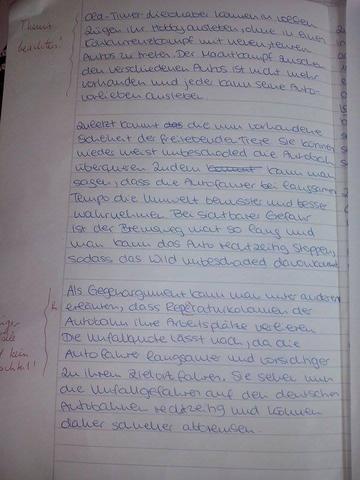 Thema
beachten!
Old-Timer-Liebhaber können in vollen
Zügen ihr Hobby ausleben, ohne in einen
Konkurrenzkampf mit neuen, teuren
Autos zu treten. Der Machtkampf zwischen
den verschiedenen Autos ist nicht mehr
vorhanden und jeder kann seine Auto-
vorlieben ausleben.
Zuletzt kommt das die nun vorhandene
Sicherheit der freilebenden Tiere. Sie können
wieder meist unbeschadet die Autobahn
überqueren. Zudem kommt kann man
sagen, dass die Autofahrer bei langsamen
Tempo die Umwelt bewusster und besser
wahrnehmen. Bei sichtbarer Gefahr
ist der Bremsweg nicht so lang und
man kann das Auto rechtzeitig stoppen,
sodass das Wild unbeschadet davonkommt.
Als Gegenargument kann man unter anderem
erläutern, dass Reperaturkolonnen der
Autobahn ihre Arbeitsplätze verlieren.
Die Unfallquote lässt nach, da die
Autofahrer langsamer und vorsichtiger
zu ihrem Zielort fahren. Sie sehen nun
die Unfallgefahren auf den deutschen
Autobahnen rechtzeitig und können
daher schneller abbremsen.
kein